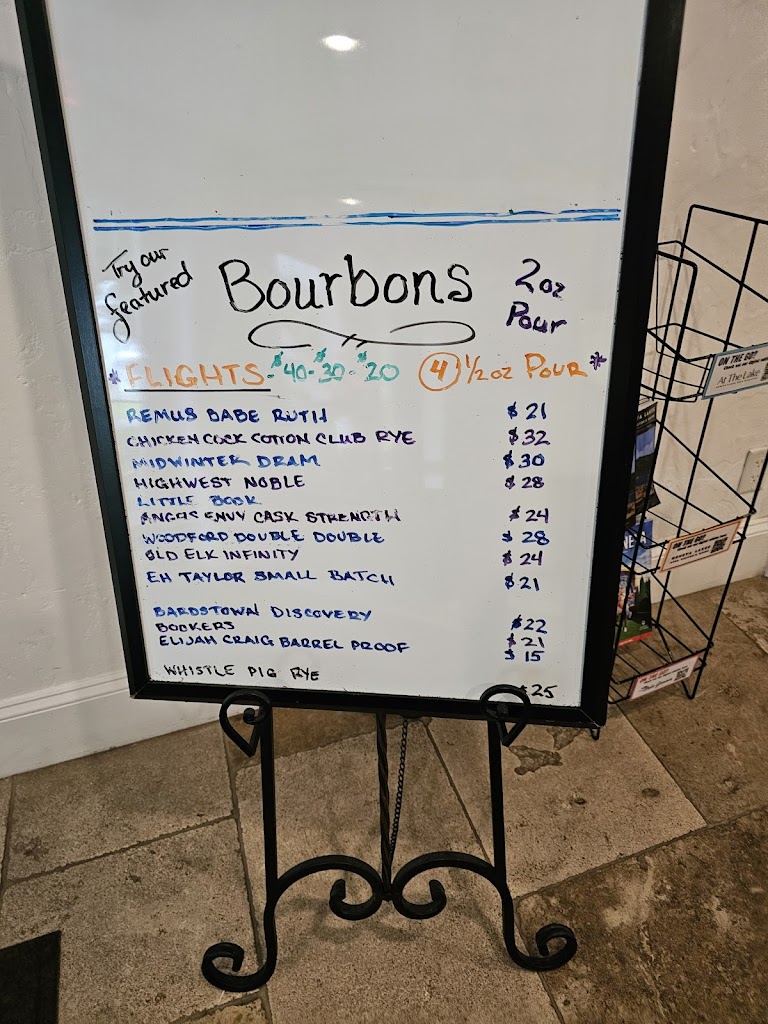 Try our
featured
Bourbons
2oz
Pour
*FLIGHTS-$40-$30-$20 (4) 1/2oz POUR*
REMUS BABE RUTH $21
CHICKEN COCK COTTON CLUB RYE $32
MIDWINTER DRAM $30
HIGHWEST NOBLE $28
LITTLE BOOK
ANGES ENVY CASK STRENGTH $24
WOODFORD DOUBLE DOUBLE $28
OLD ELK INFINITY $24
EH TAYLOR SMALL BATCH $21
BARDSTOWN DISCOVERY $22
BOOKERS $21
ELIJAH CRAIG BARREL PROOF $15
WHISTLE PIG RYE $25
ON THE GO?
At The Lake
ON THE GO?